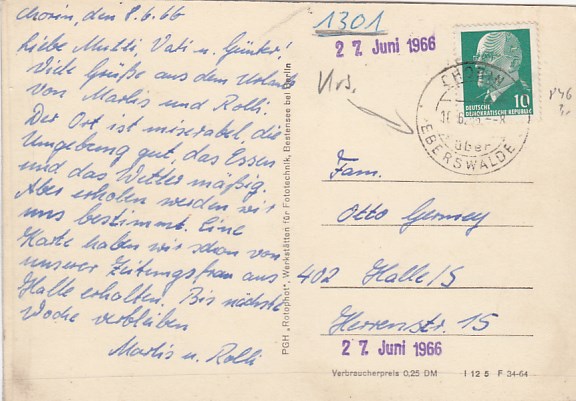 Chorin, den 8.6.66
Liebe Mutti, Vati u. Günter!
Viele Grüße aus dem Urlaub
von Marlis und Rolli.
Der Ort ist miserabel, die
Umgebung gut, das Essen
und das Wetter mäßig.
Aber erholen werden wir
uns bestimmt. Eine
Karte haben wir schon von
unserer Zeitungsfrau aus
Halle erhalten. Bis nächste
Woche verbleiben
Marlis u. Rolli
PGH „Rotophot", Werkstätten für Fototechnik, Bestensee bei Berlin
1301
27. Juni 1966
DEUTSCHE
DEMOKRATISCHE REPUBLIK
10
CHORIN
über
EBERSWALDE
Fam.
Otto Germey
402 Halle/S
Herrenstr. 15
27. Juni 1966
Verbraucherpreis 0,25 DM I 12 5 F 34-64